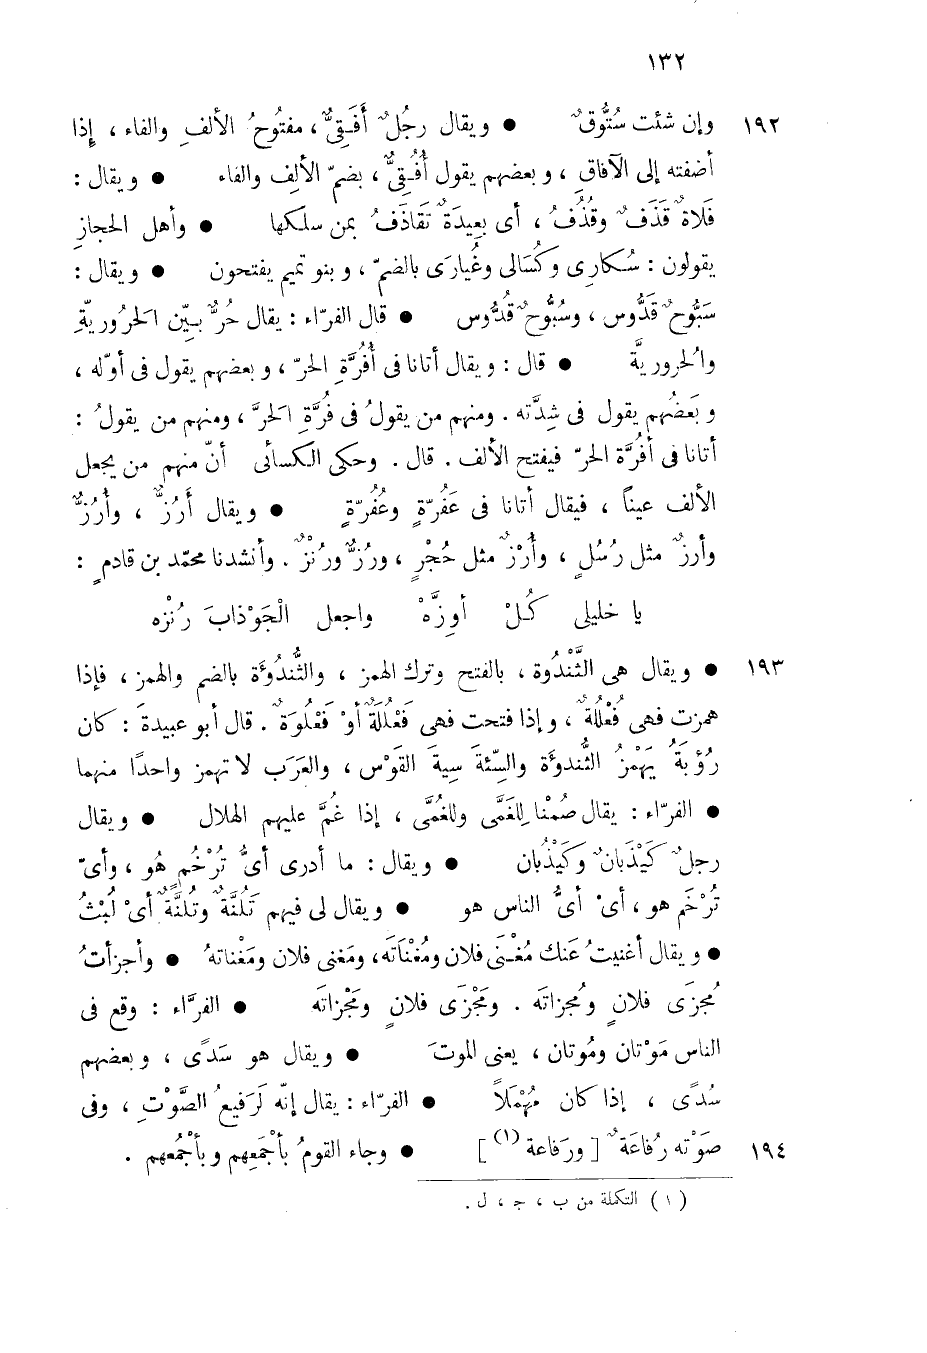 ١٣٢
١٩٢ وإن شئت سُتُّوقٌ ● ويقال رجُلٌ أَفَقِىٌّ، مفتُوحُ الألفِ والفاء ، إذا
أضفته إلى الآفاقِ ، وبعضهم يقول أُفُقِىٌّ ، بضمّ الألِف والفاء ● ويقال :
فَلاةٌ قَذَفٌ وقُذُفٌ ، أى بعِيدَةٌ تَقَاذَفُ بمن سلَكها ● وأهل الحجازِ
يقولون : سُكارى وكُسَالى وغُيارَى بالضمّ ، وبنو تميم يفتحون ● ويقال :
سَبُّوحٌ قَدُّوس ، وسُبُّوحٌ قدُّوس ● قال الفرّاء : يقال حُرٌّ بيّن الحَرُوريّةِ
والحُرورِيَّة ● قال : ويقال أتانا فى أُفُرَّةِ الحرّ ، وبعضهم يقول فى أوّله ،
وبَعضُهم يقول فى شِدَّته . ومنهم من يقولُ فى فُرَّةِ الحَرَّ ، ومنهم من يقولُ :
أتانا فى أَفُرَّة الحرّ فيفتح الألف . قال . وحكى الكسائى أنّ منهم من يجعل
الألف عيناً ، فيقال أتانا فى عَفُرّةٍ وعُفُرّةٍ ● ويقال أَرُزٌّ ، وأُرُزٌّ
وأرزٌ مثل رُسُلٍ ، وأُرْزٌ مثل حُجْرٍ ، ورُزٌّ ورُنْزٌ . وأنشدنا محمّد بن قادمٍ :
يا خليلى كُلْ أوِزَّهْ واجعل الْجَوْذابَ رُنْزه
١٩٣ ● ويقال هى الثَّنْدُوة ، بالفتح وترك الهمز ، والثُّنْدُوَّة بالضم والهمز ، فإذا
همزت فهى فُعْلُلةٌ ، وإذا فتحت فهى فَعْلُلَةٌ أوْ فَعْلُوَةٌ . قال أبو عبيدة : كان
رُؤبَةُ يَهْمِزُ الثُّندوأة والسِّئةَ سِيةَ القَوْس ، والعَرَب لا تهمز واحدًا منهما
● الفرّاء : يقال صُمْنا لِلغَمَّى وللغُمَّى ، إذا غُمَّ عليهم الهلال ● ويقال
رجلٌ كَيْذَبانٌ وكَيْذُبان ● ويقال : ما أدرى أىُّ تُرْخُمٍ هُو ، وأىّ
تُرْخَم هو ، أىْ أىُّ الناس هو ● ويقال لى فيهم تَلُنَّةٌ وتُلُنَّةٌ أىْ لُبْثُ
● ويقال أغنيتُ عَنك مُغْنَى فلان ومُغْنَاتَه، ومَغنى فلان ومَغْناتهُ ● وأجزأتُ
مُجزَى فلانٍ ومُجزاتَه . ومَجْزَى فلانٍ ومَجْزاتَه ● الفرَّاء : وقع فى
الناس مَوْتان ومُوتان ، يعنى الموتَ ● ويقال هو سَدًى ، وبعضهم
سُدًى ، إذا كان مُهْمَلاً ● الفرّاء : يقال إنّه لَرَفيعُ الصَّوْتِ ، وفى
١٩٤ صَوْته رُفاعَةٌ [ ورَفاعة (١) ] ● وجاء القومُ بأجْمَعِهم وبأجْمُعهم .
( ١ ) التكملة من ب ، ج ، ل .